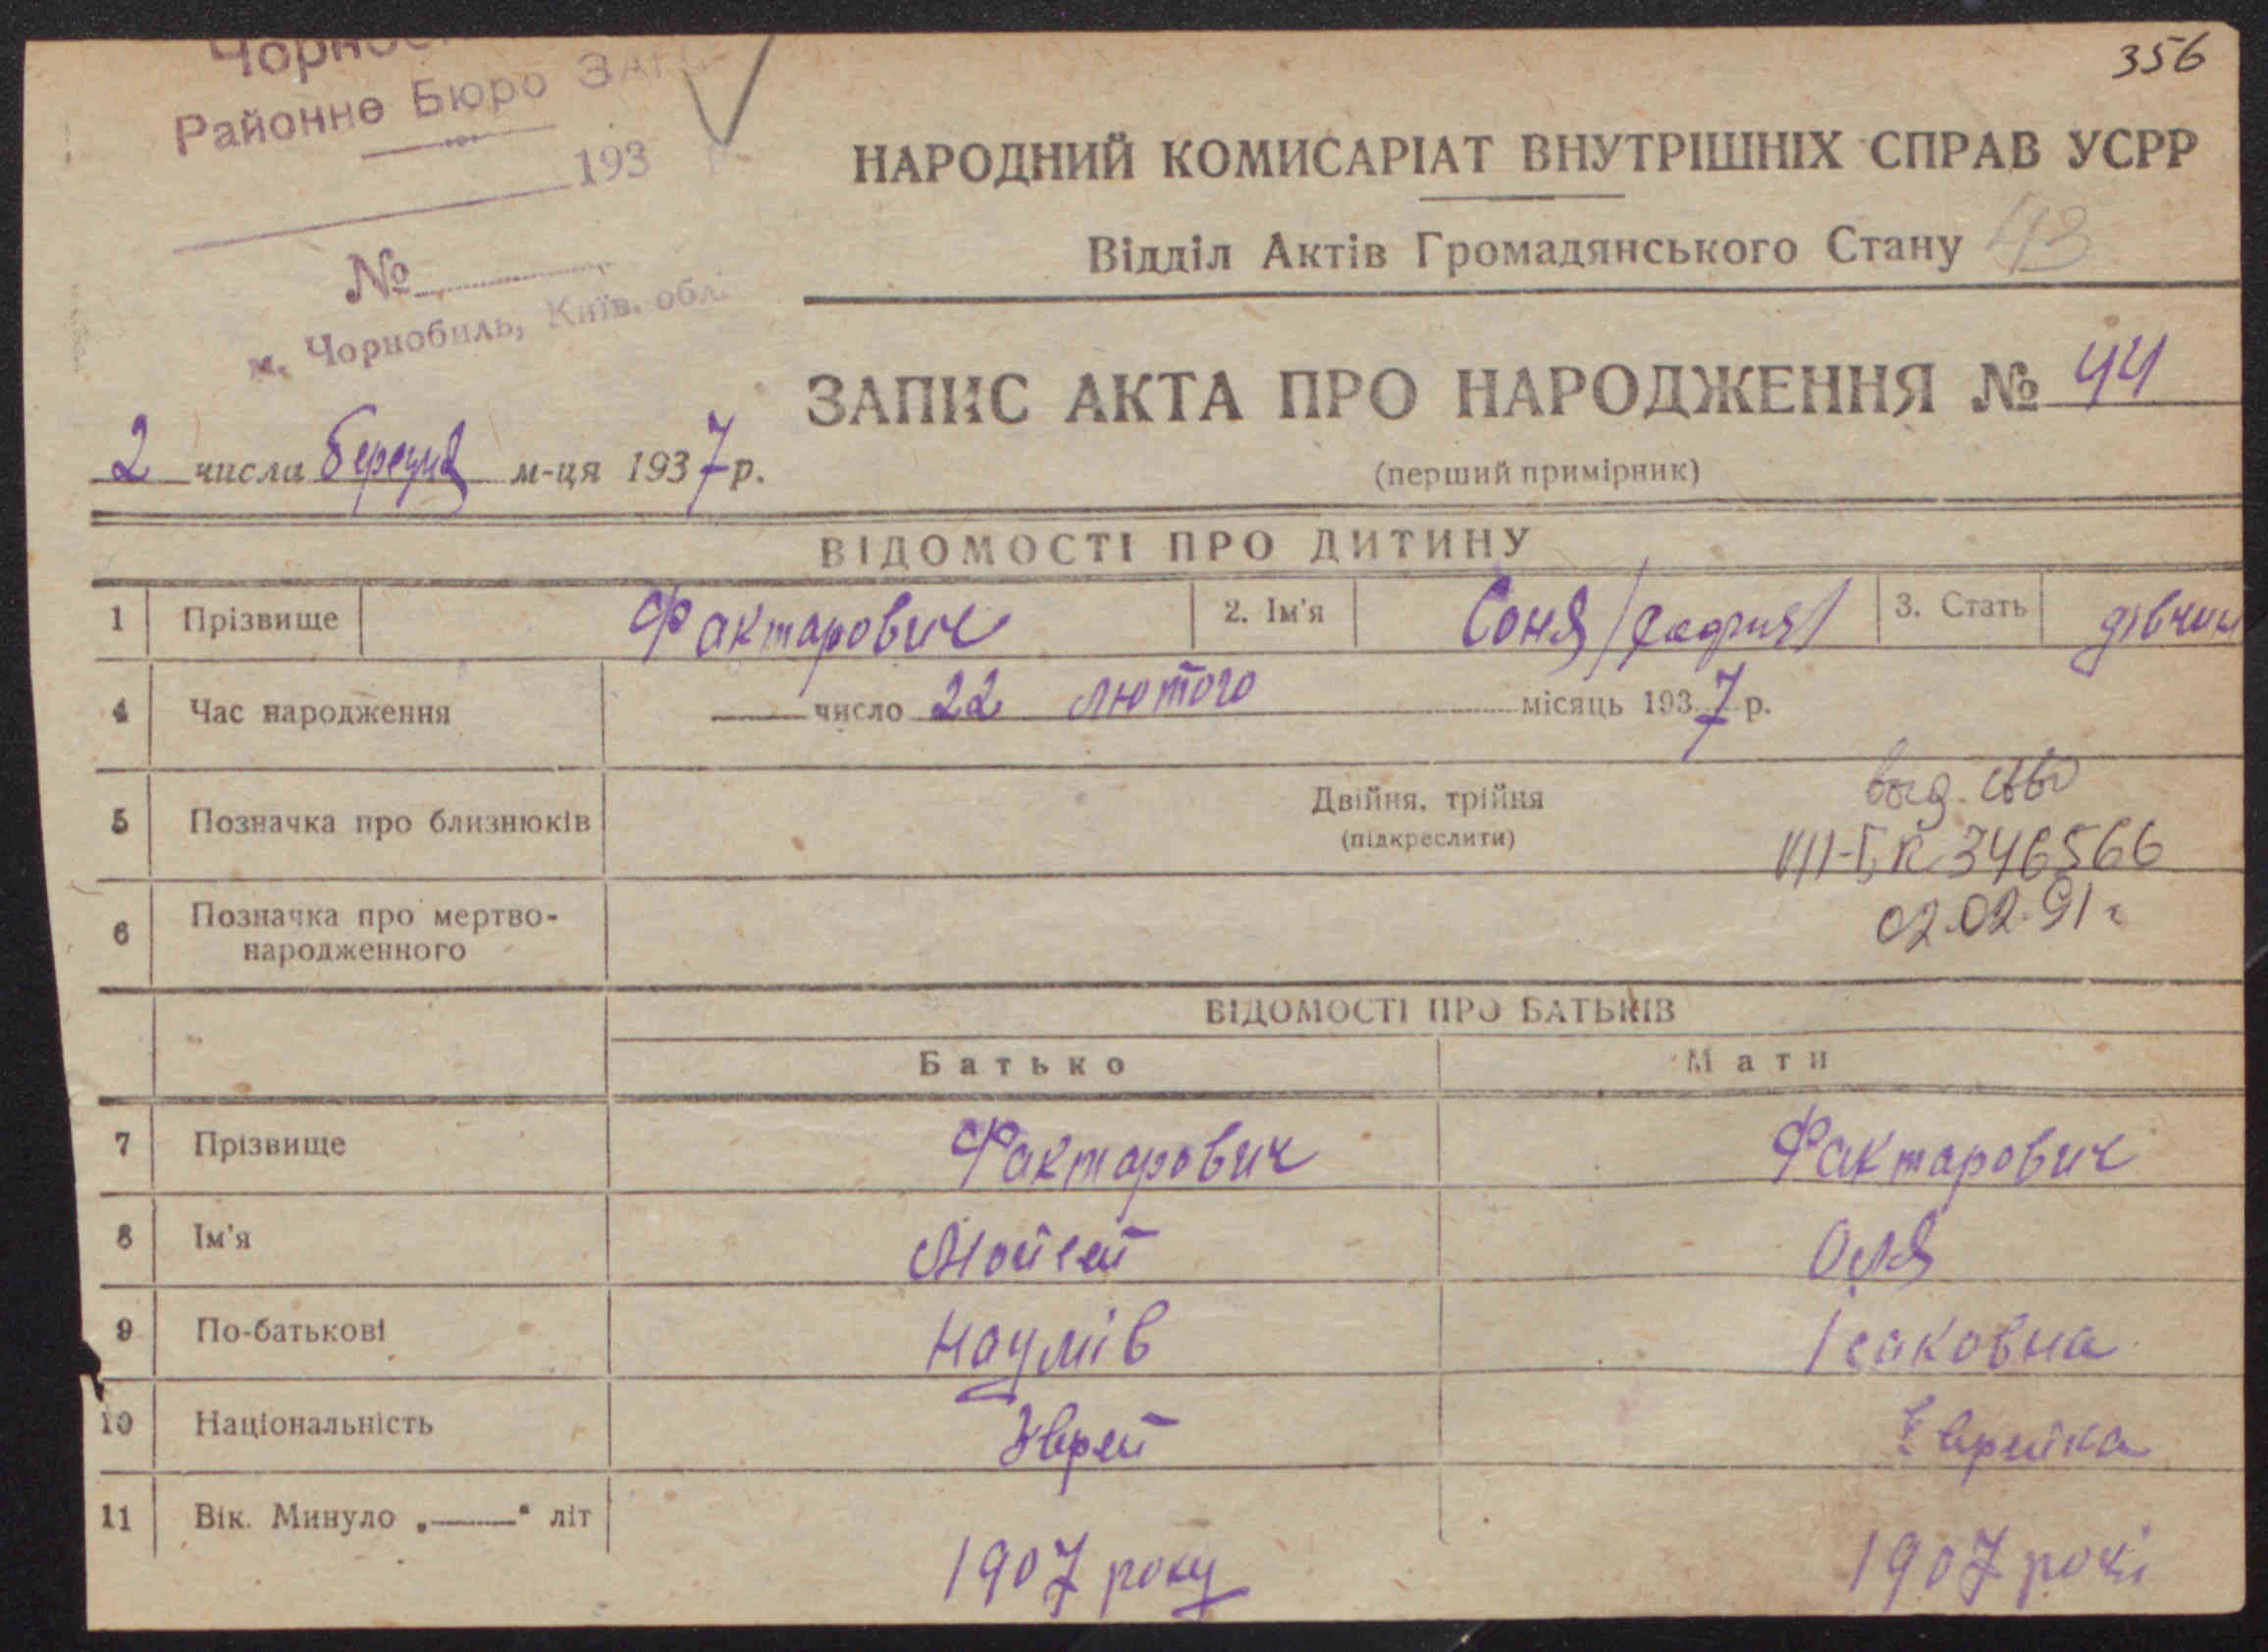 356
Районне Бюро ЗАГС
193
№
м. Чорнобиль, Київ. обл.
НАРОДНИЙ КОМИСАРІАТ ВНУТРІШНІХ СПРАВ УСРР
Відділ Актів Громадянського Стану 43
ЗАПИС АКТА ПРО НАРОДЖЕННЯ № 44
2 числа березня м-ця 1937 р.
(перший примірник)
ВІДОМОСТІ ПРО ДИТИНУ
1 Прізвище Фактарович 2. Ім'я Соня 3. Стать дівчин
4 Час народження число 22 лютого місяць 1937 р.
5 Позначка про близнюків Двійня, трійня
(підкреслити)
выд. св-во
VIII-БК 346566
02.02.91 г
6 Позначка про мертво-
народженного
ВІДОМОСТІ ПРО БАТЬКІВ
Батько Мати
7 Прізвище Фактарович Фактарович
8 Ім'я Мойсей Оля
9 По-батькові Наумів Ісаковна
10 Національність Єврей Єврейка
11 Вік. Минуло „——“ літ 1907 року 1907 рокі